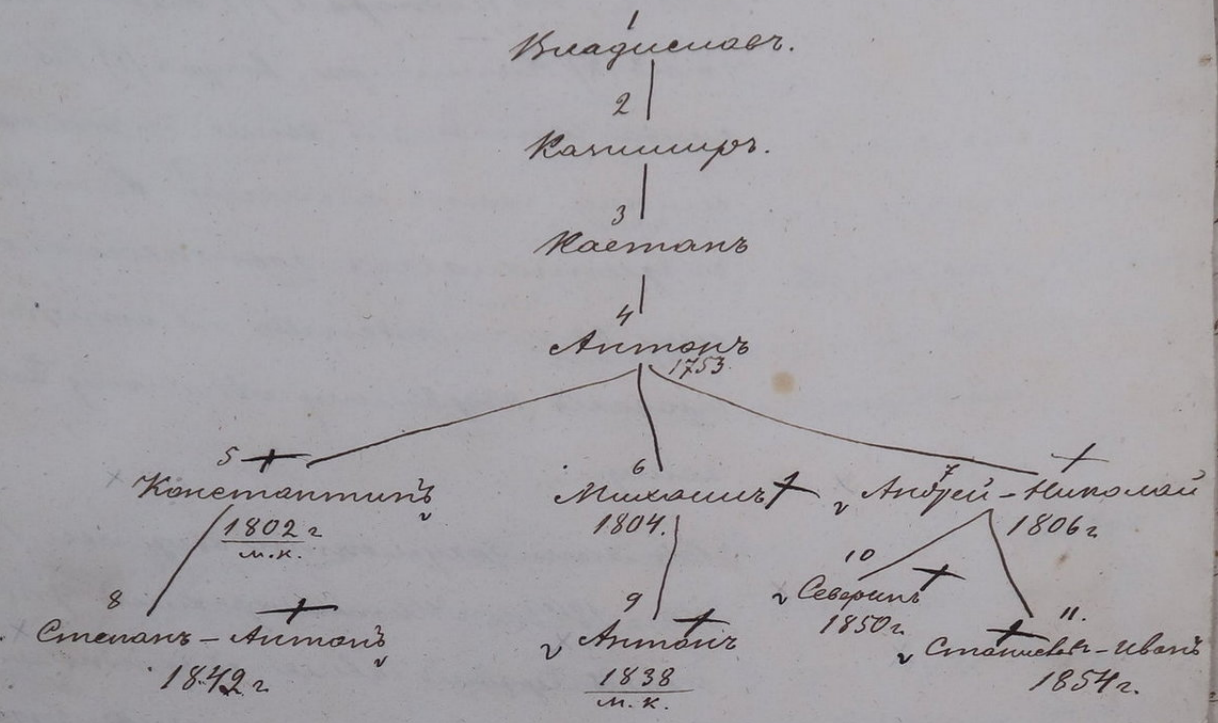 1
Владиславъ.
2
Казимиръ.
3
Каетанъ
4
Антонъ
1753.
5
Константинъ
1802 г
м.к.
6
Михаилъ
1804.
7
Андрей-Николай
1806 г
8
Степанъ-Антонъ
1842 г
9
Антонъ
1838
м.к.
10
Северинъ
1850 г.
11.
Станиславъ-Иванъ
1854 г.